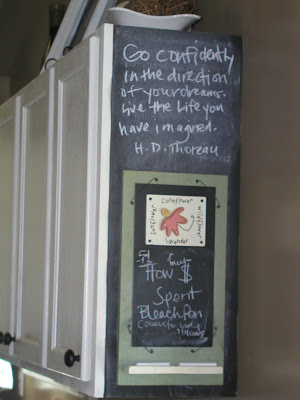 Go confidently
in the direction
of your dreams.
Live the Life you
have imagined.
H. D. Thoreau
coneflower
sunflower
wildflower
lavender
How $
Spent
Bleach Pen